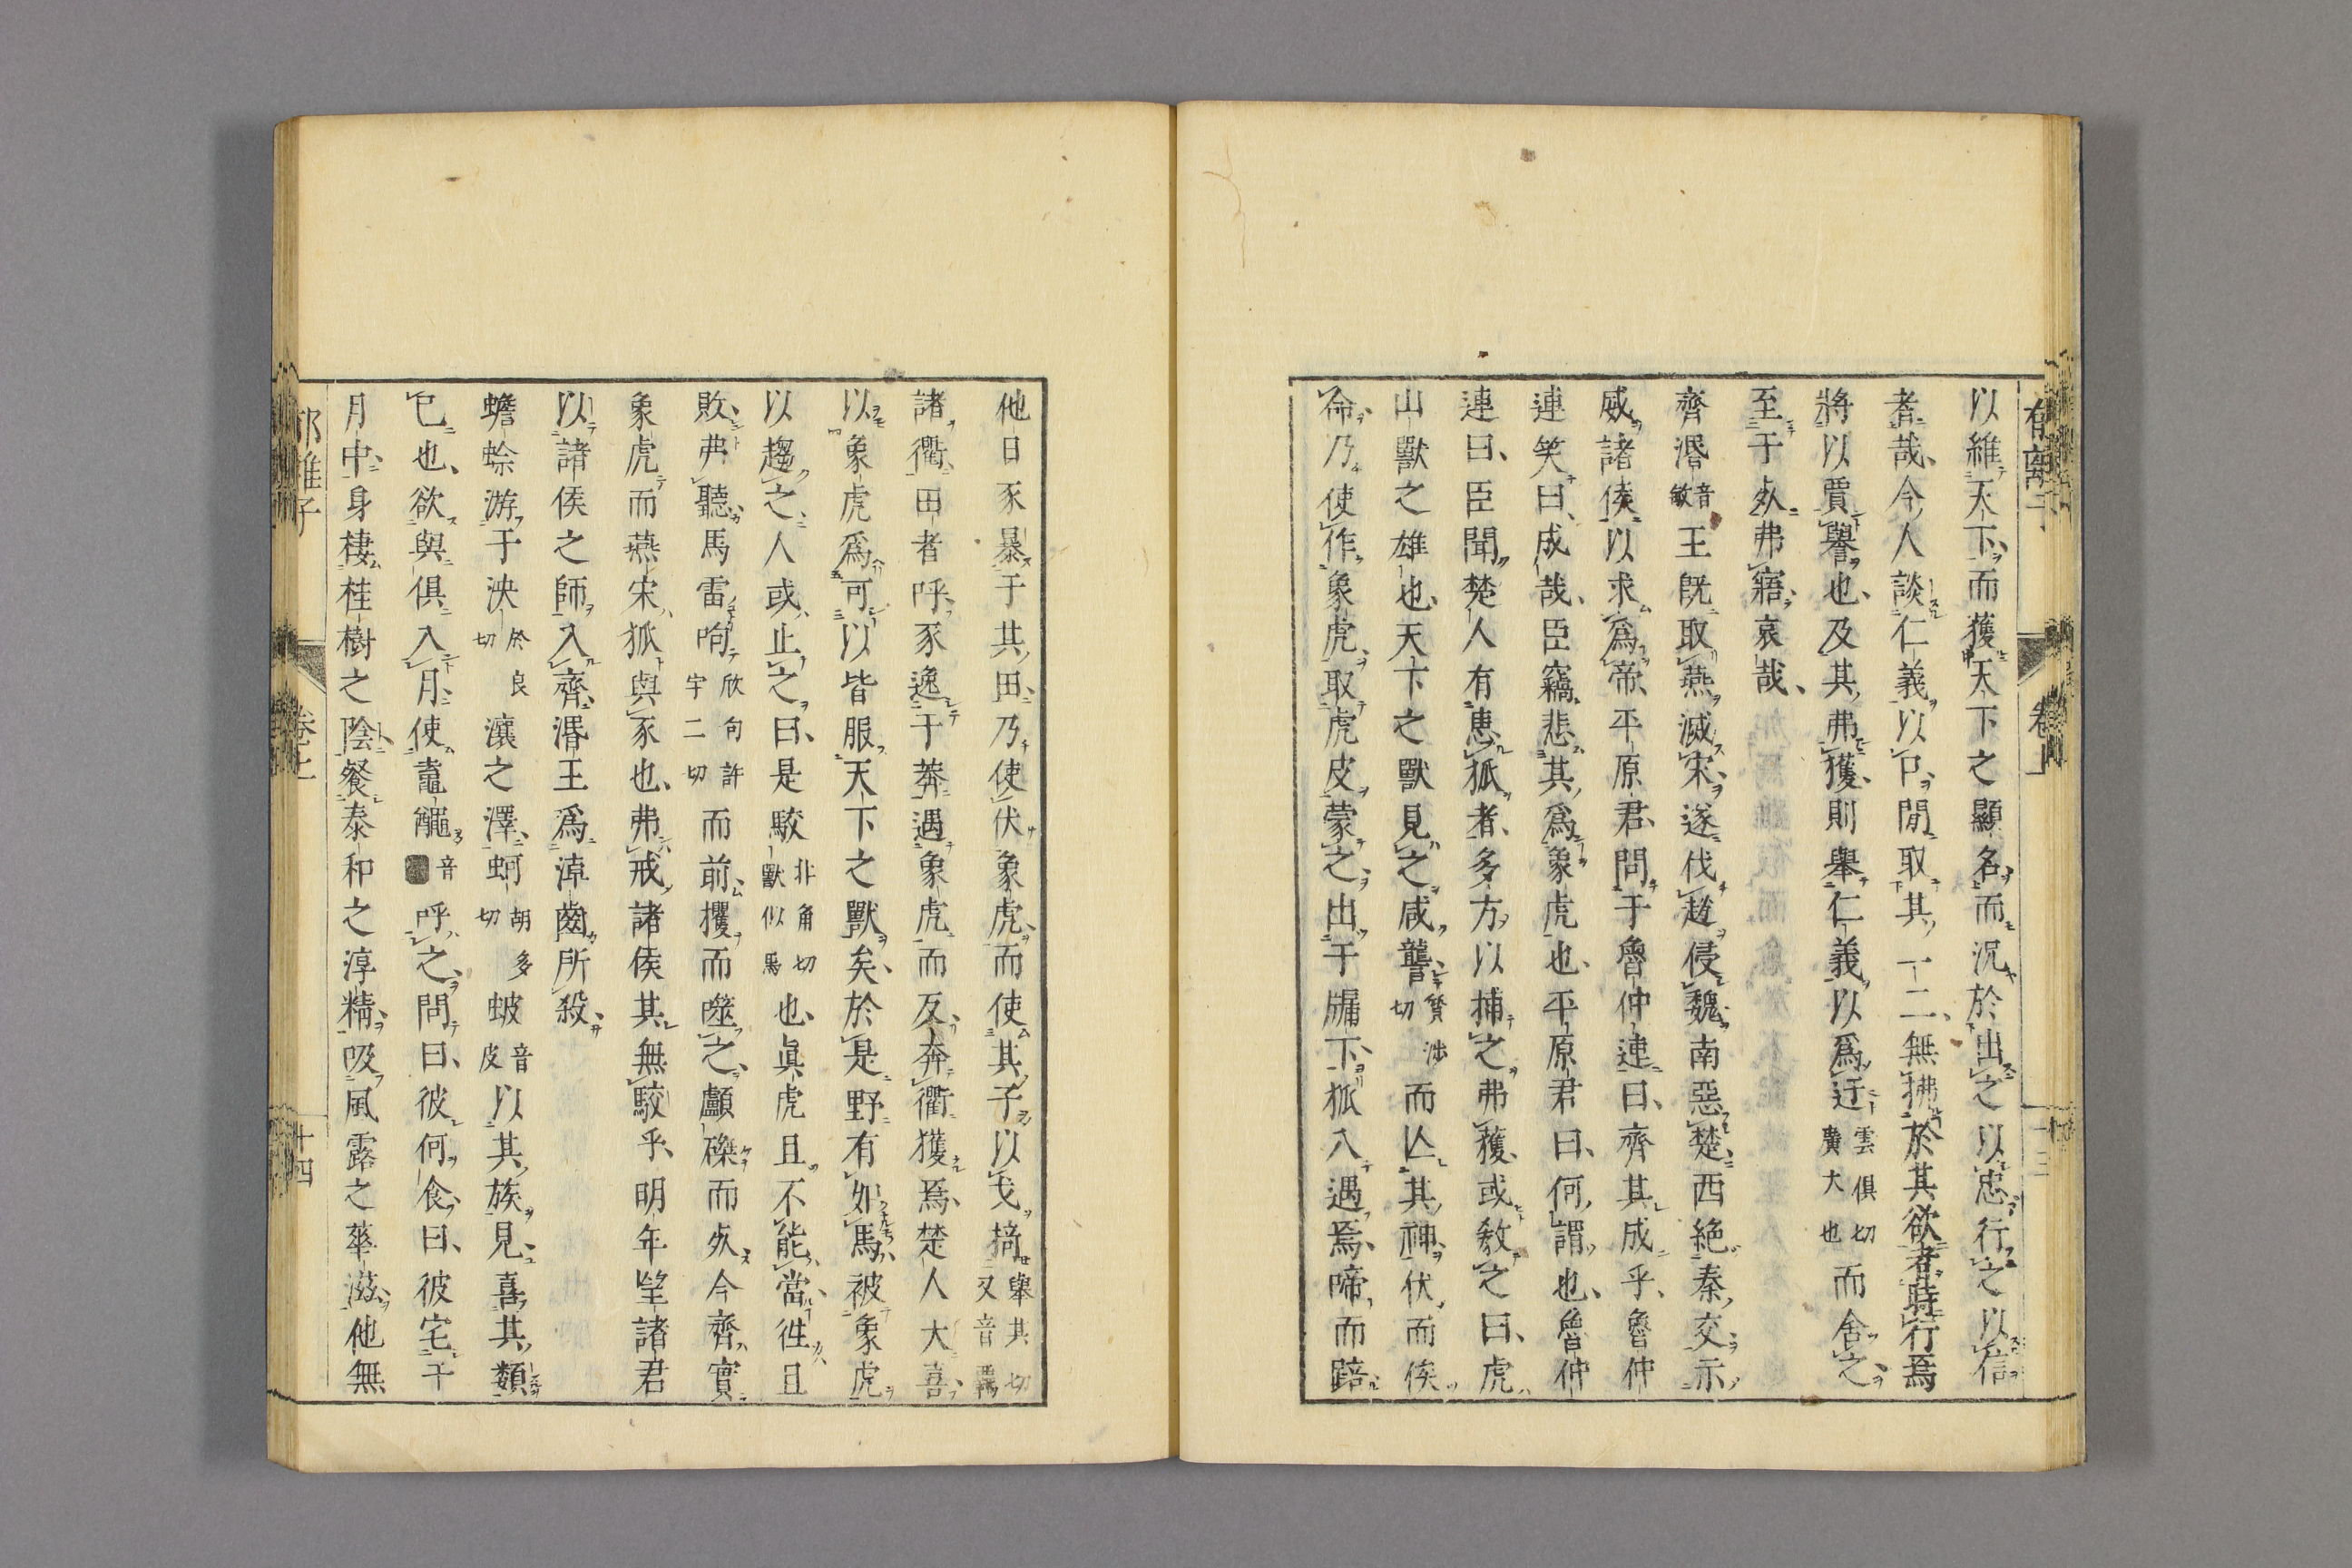 以維天下而獲天下之顯名而況於出之以忠行之以信
者哉今人談仁義以口間取其一二無拂於其欲者時行焉
將以賈譽也及其弗獲則舉仁義以為迂雲俱切廣大也而舍之
至于死弗寤哀哉
齊湣音敏王既取燕滅宋遂伐趙侵魏南惡楚西絕秦交示
威諸侯以求為帝平原君問于魯仲連曰齊其成乎魯仲
連笑曰成哉臣竊悲其為象虎也平原君曰何謂也魯仲
連曰臣聞楚人有患狐者多方以捕之弗獲或教之曰虎
山獸之雄也天下之獸見之咸讋質涉切而亾其神伏而俟
命乃使作象虎取虎皮蒙之出于牖下狐入遇焉啼而踣
他日豕暴于其田乃使伏象虎而使其子以戈掎舉其切又音羈
諸衢田者呼豕逸于莽遇象虎而反奔衢獲焉楚人大喜
以象虎為可以皆服天下之獸矣於是野有如馬被象虎
以趨之人或止之曰是駮非角切獸似馬也真虎且不能當徃且
敗弗聽馬雷呴欣句許宇二切而前攫而噬之顱磔而死今齊實
象虎而燕宋狐與豕也弗戒諸侯其無駮乎明年望諸君
以諸侯之師入齊湣王為淖齒所殺
蟾蜍游于泱於良切瀼之澤蚵胡多切蚾音皮以其族見喜其類
己也欲與俱入月使鼀𪓰音呼之問曰彼何食曰彼宅于
月中身棲桂樹之陰餐泰和之淳精吸風露之華滋他無
卷上
十四